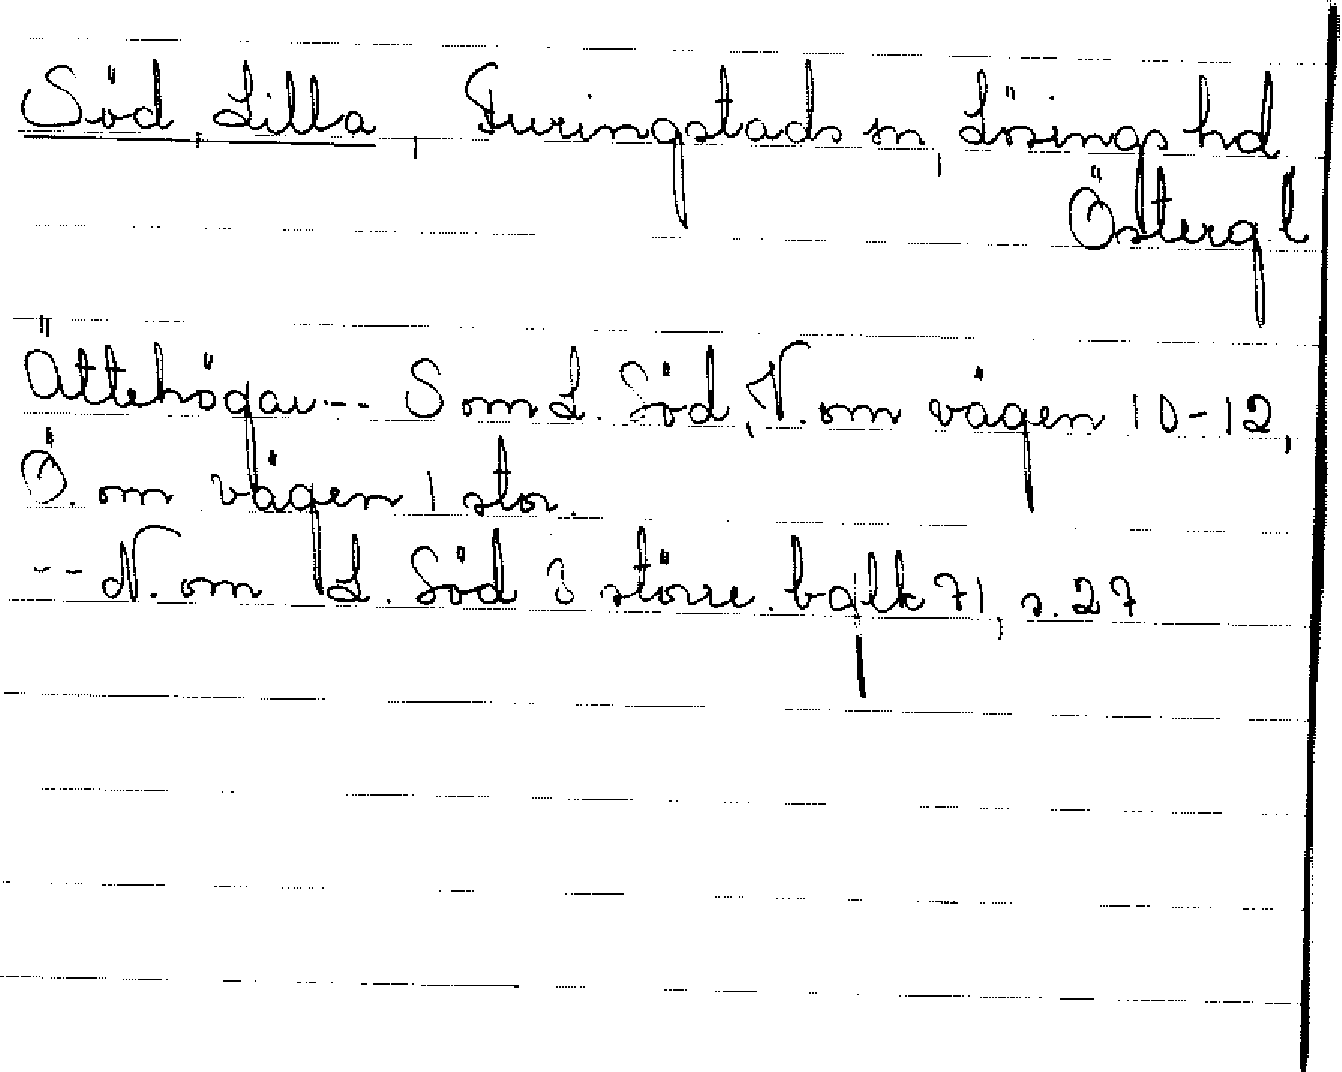 Söd, Lilla, Furingstads sn, Lösings hd
Östergl
Ättehögar -- S om L. Söd, V. om vägen 10-12,
Ö. om vägen 1 stor.
-- N. om L. Söd 3 större. bglk 71, s. 27